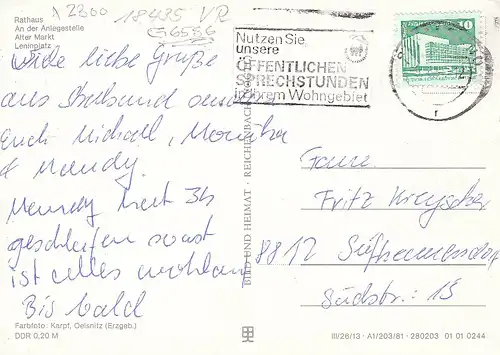 A 2300 18435 VR
G6586
Rathaus
An der Anlegestelle
Alter Markt
Leninplatz
Viele liebe Grüße
aus Stralsund senden
Euch Michael, Monika
& Mandy.
Mandy hat 3h
geschlafen sonst
ist alles wohlauf
Bis bald
Farbfoto: Karpf, Oelsnitz (Erzgeb.)
DDR 0,20 M
BILD UND HEIMAT · REICHENBACH
Nutzen Sie
unsere
ÖFFENTLICHEN
SPRECHSTUNDEN
in Ihrem Wohngebiet
10
Fritz
8812 Seifhennersdorf
Südstr.: 15
III/26/13 · A1/203/81 · 280203 01 01 0244